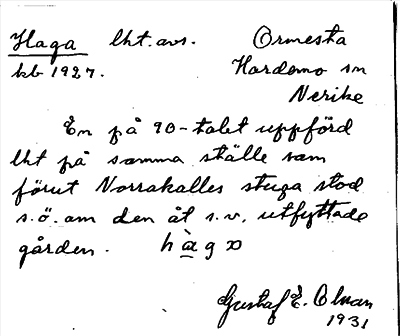 Haga lht. avs. Ormesta
kb 1927. Hardemo sn
Nerike
En på 90-talet uppförd
lht på samma ställe som
förut Norrakalles stuga stod
s.ö. om den åt s.v. utflyttade
gården. hàga
Gustaf E. Olman
1931